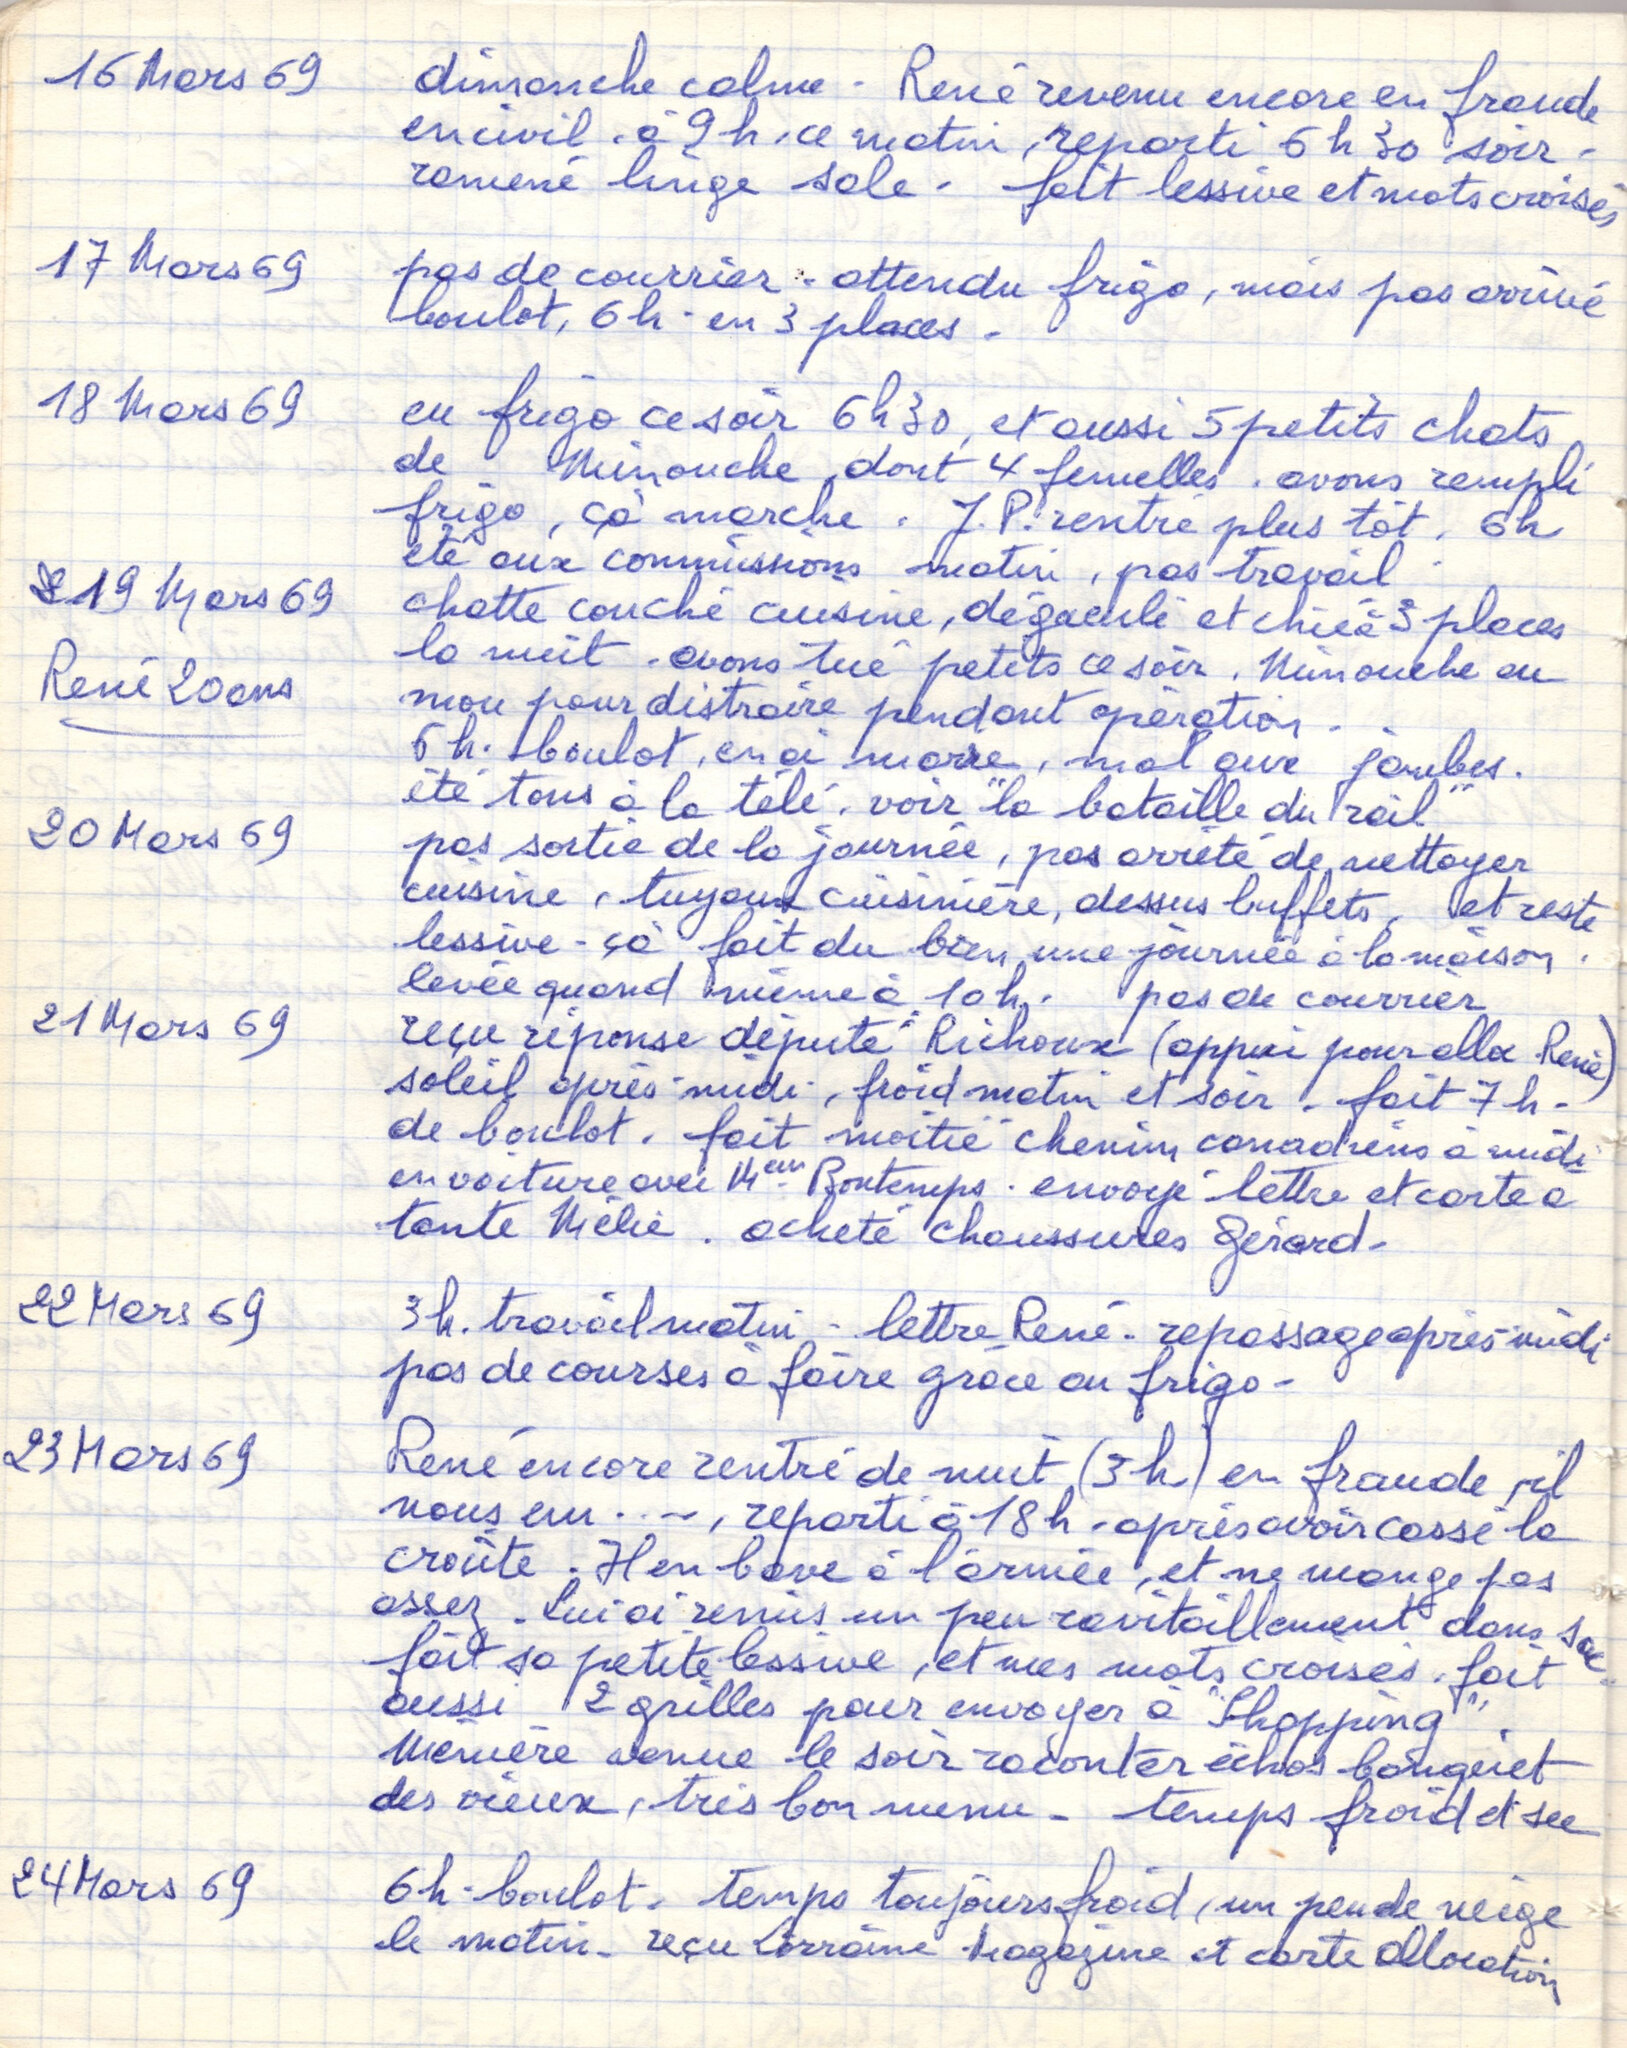 16 Mars 69 dimanche calme - René revenu encore en fraude
en civil. à 9h. ce matin, reparti 6h30 soir -
ramené linge sale - fait lessive et mots croisés
17 Mars 69 pas de courrier - attendu frigo, mais pas arrivé
boulot, 6h - en 3 places -
18 Mars 69 eu frigo ce soir 6h30, et aussi 5 petits chats
de Minouche, dont 4 femelles. avons rempli
frigo, çà marche. J.P. rentré plus tôt. 6h
été aux commissions matin, pas travail.
19 Mars 69 chatte couché cuisine, dégueulé et chié à 3 places
la nuit. avons tué petits ce soir. Minouche eu
René 20 ans
mou pour distraire pendant opération.
6h. boulot, en ai marre, mal aux jambes.
été tous à la télé. voir "la bataille du rail"
20 Mars 69 pas sortie de la journée, pas arrêté de nettoyer
cuisine, tuyaux cuisinière, dessus buffets, et reste
lessive - çà fait du bien une journée à la maison.
levée quand même à 10h. pas de courrier
21 Mars 69 reçu réponse député Richoux (appui pour alloc René)
soleil après-midi, froid matin et soir - fait 7h -
de boulot. fait moitié chemin canadiens à midi
en voiture avec Bontemps. envoyé lettre et carte à
tante Mélie. acheté chaussures Gérard -
22 Mars 69 3h. travail matin - lettre René - repassage après-midi
pas de courses à faire grâce au frigo -
23 Mars 69 René encore rentré de nuit (3h) en fraude, il
nous em...., reparti à 18h - après avoir cassé la
croûte. Il en bave à l'armée, et ne mange pas
assez. Lui ai remis un peu ravitaillement dans sac
fait sa petite lessive, et mes mots croisés. fait
aussi 2 grilles pour envoyer à "Shopping".
Mémère venue le soir raconter échos banquet
des vieux, très bon menu - temps froid et sec
24 Mars 69 6h - boulot. temps toujours froid, un peu de neige
le matin - reçu Lorraine Magazine et carte allocation